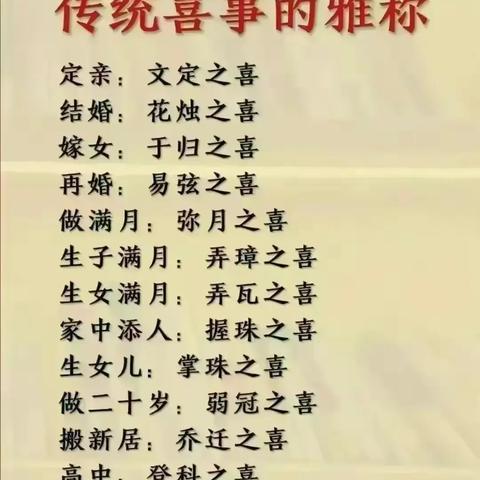 传统喜事的雅称
定亲：文定之喜
结婚：花烛之喜
嫁女：于归之喜
再婚：易弦之喜
做满月：弥月之喜
生子满月：弄璋之喜
生女满月：弄瓦之喜
家中添人：握珠之喜
生女儿：掌珠之喜
做二十岁：弱冠之喜
搬新居：乔迁之喜
高中：登科之喜